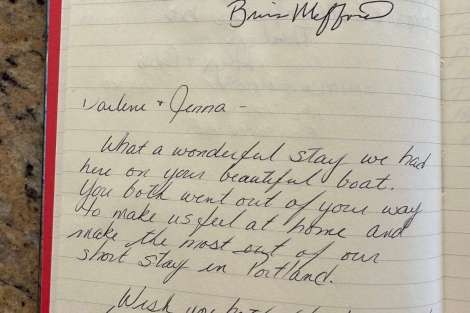 Darlene + Jenna -
What a wonderful stay we had
here on your beautiful boat.
You both went out of your way
to make us feel at home and
make the most out of our
short stay in Portland.
Wish you both